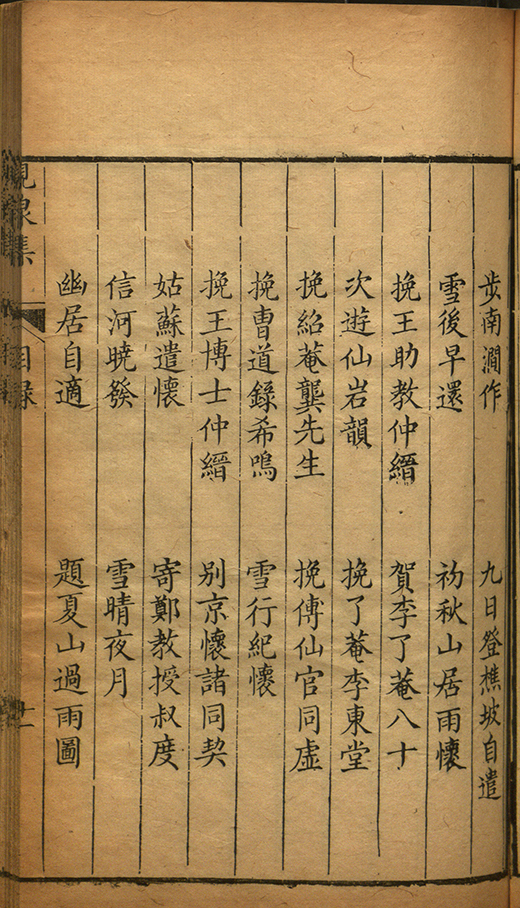 步南澗作 九日登樵坡自遣
雪後早還 初秋山居雨懷
挽王助教仲縉 賀李了菴八十
次遊仙岩韻 挽了菴李東堂
挽紹菴龔先生 挽傅仙官同虛
挽曹道錄希鳴 雪行紀懷
挽王博士仲縉 别京懷諸同契
姑蘇遣懷 寄鄭教授叔度
信河曉發 雪晴夜月
幽居自適 題夏山過雨圖
峴泉集 目錄 十一